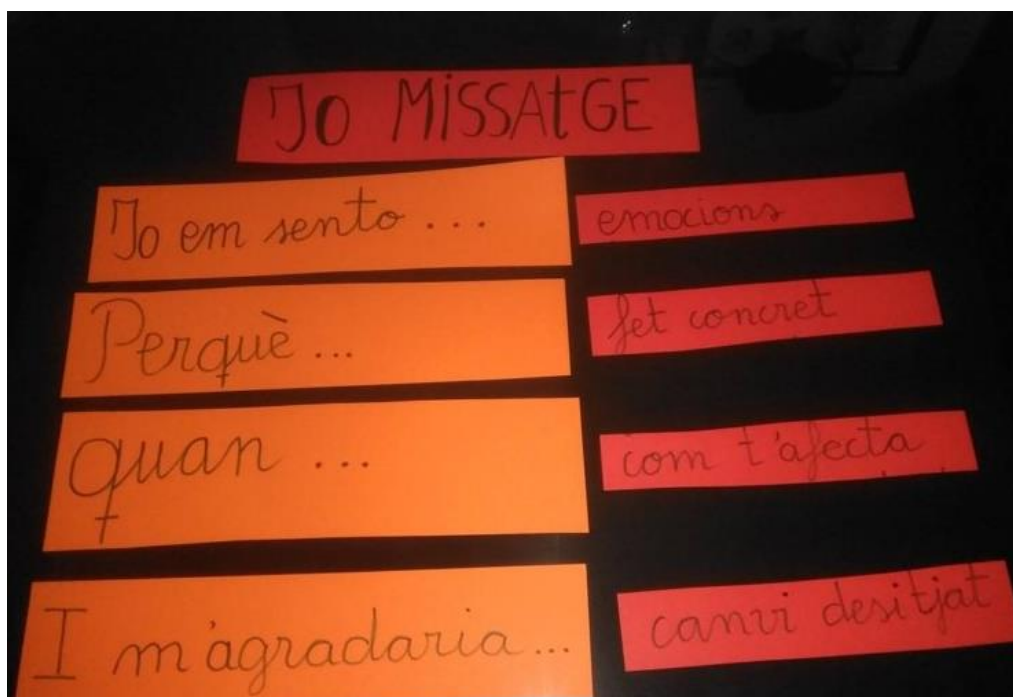 Jo MiSSAtGE
Jo em sento ... emocions
Perquè ... fet concret
quan ... com t'afecta
I m'agradaria... canvi desitjat